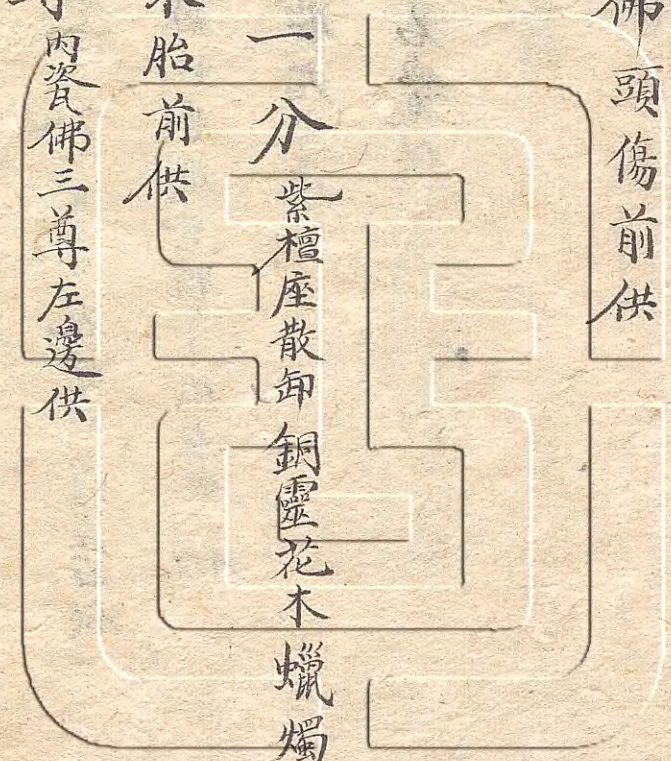 佛頭傷前供
一分紫檀座散卸銅靈花木蠟燭
胎前供
內瓷佛三尊左邊供